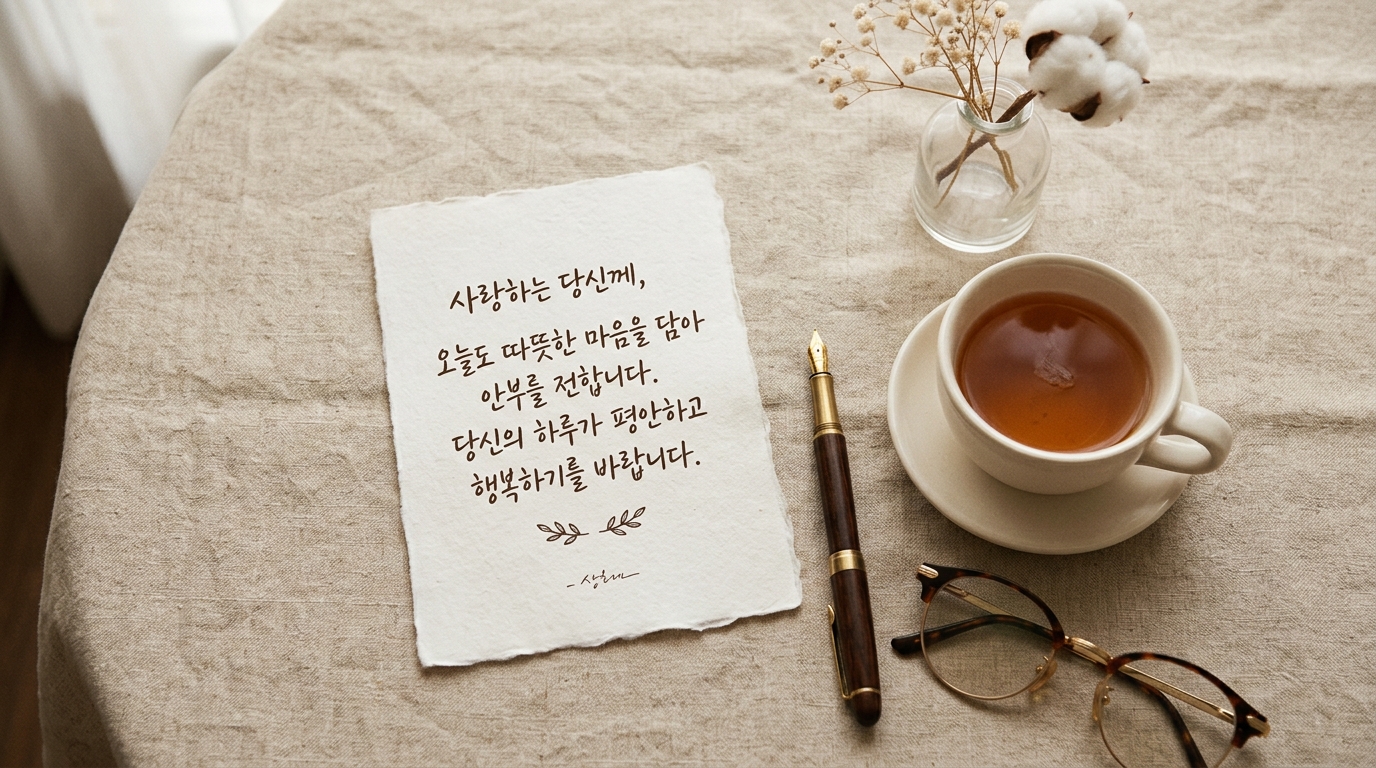 사랑하는 당신께,
오늘도 따뜻한 마음을 담아
안부를 전합니다.
당신의 하루가 평안하고
행복하기를 바랍니다.